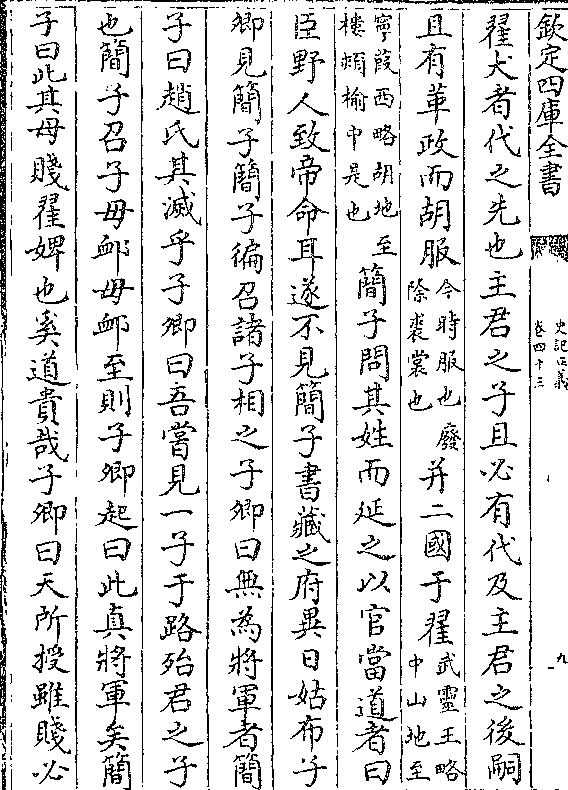 欽定四庫全書
史記正義
卷四十三
九
翟犬者代之先也主君之子且必有代及主君之後嗣
且有革政而胡服今時服也廢除裘裳也并二國于翟武靈王略中山地至
寧葭西略胡地至樓煩榆中是也簡子問其姓而延之以官當道者曰
臣野人致帝命耳遂不見簡子書藏之府異日姑布子
卿見簡子簡子徧召諸子相之子卿曰無為將軍者簡
子曰趙氏其滅乎子卿曰吾嘗見一子于路殆君之子
也簡子召子毋卹毋卹至則子卿起曰此真將軍矣簡
子曰此其母賤翟婢也奚道貴哉子卿曰天所授雖賤必